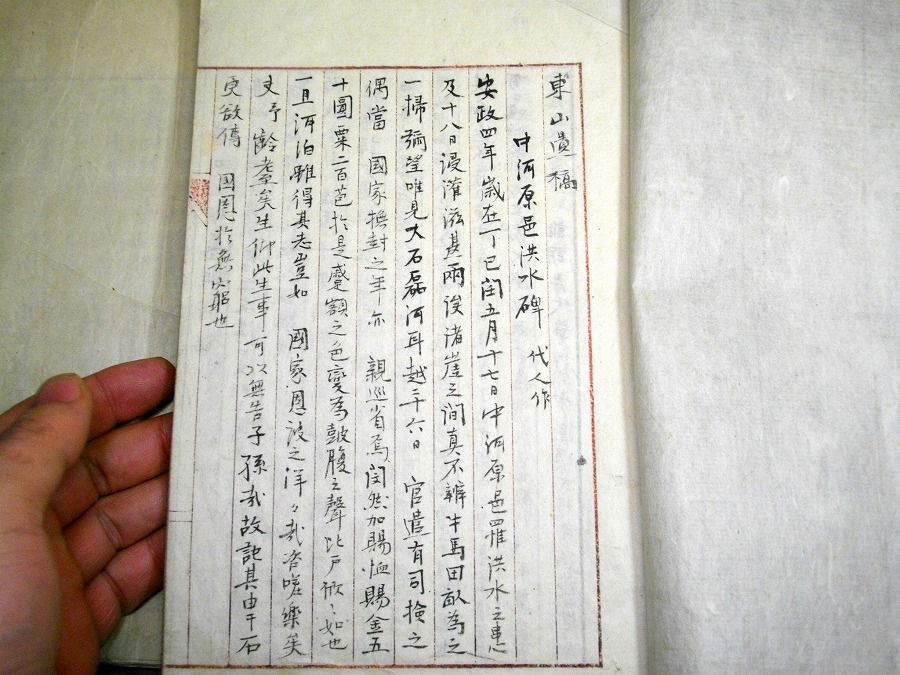 東山遺稿
中河原邑洪水碑 代人作
安政四年歳在丁巳閏五月十七日中河原邑罹洪水之患
及十八日浸淫滋甚兩涘渚崖之間真不辨牛馬田畝為之
一掃彌望唯見大石磊河耳越二十六日 官遣有司撿之
偶當 國家撫封之年亦 親巡省焉閔然加賜恤賜金五
十圓粟二百苞於是蹙額之色變為鼓腹之聲比戶欣〻如也
一旦河泊雖得其志豈如 國家恩波之洋〻哉咨嗟樂矣
叟予齡耋矣生仰此生事可以無告子孫哉故記其由于石
更欲傳 國恩於無窮也